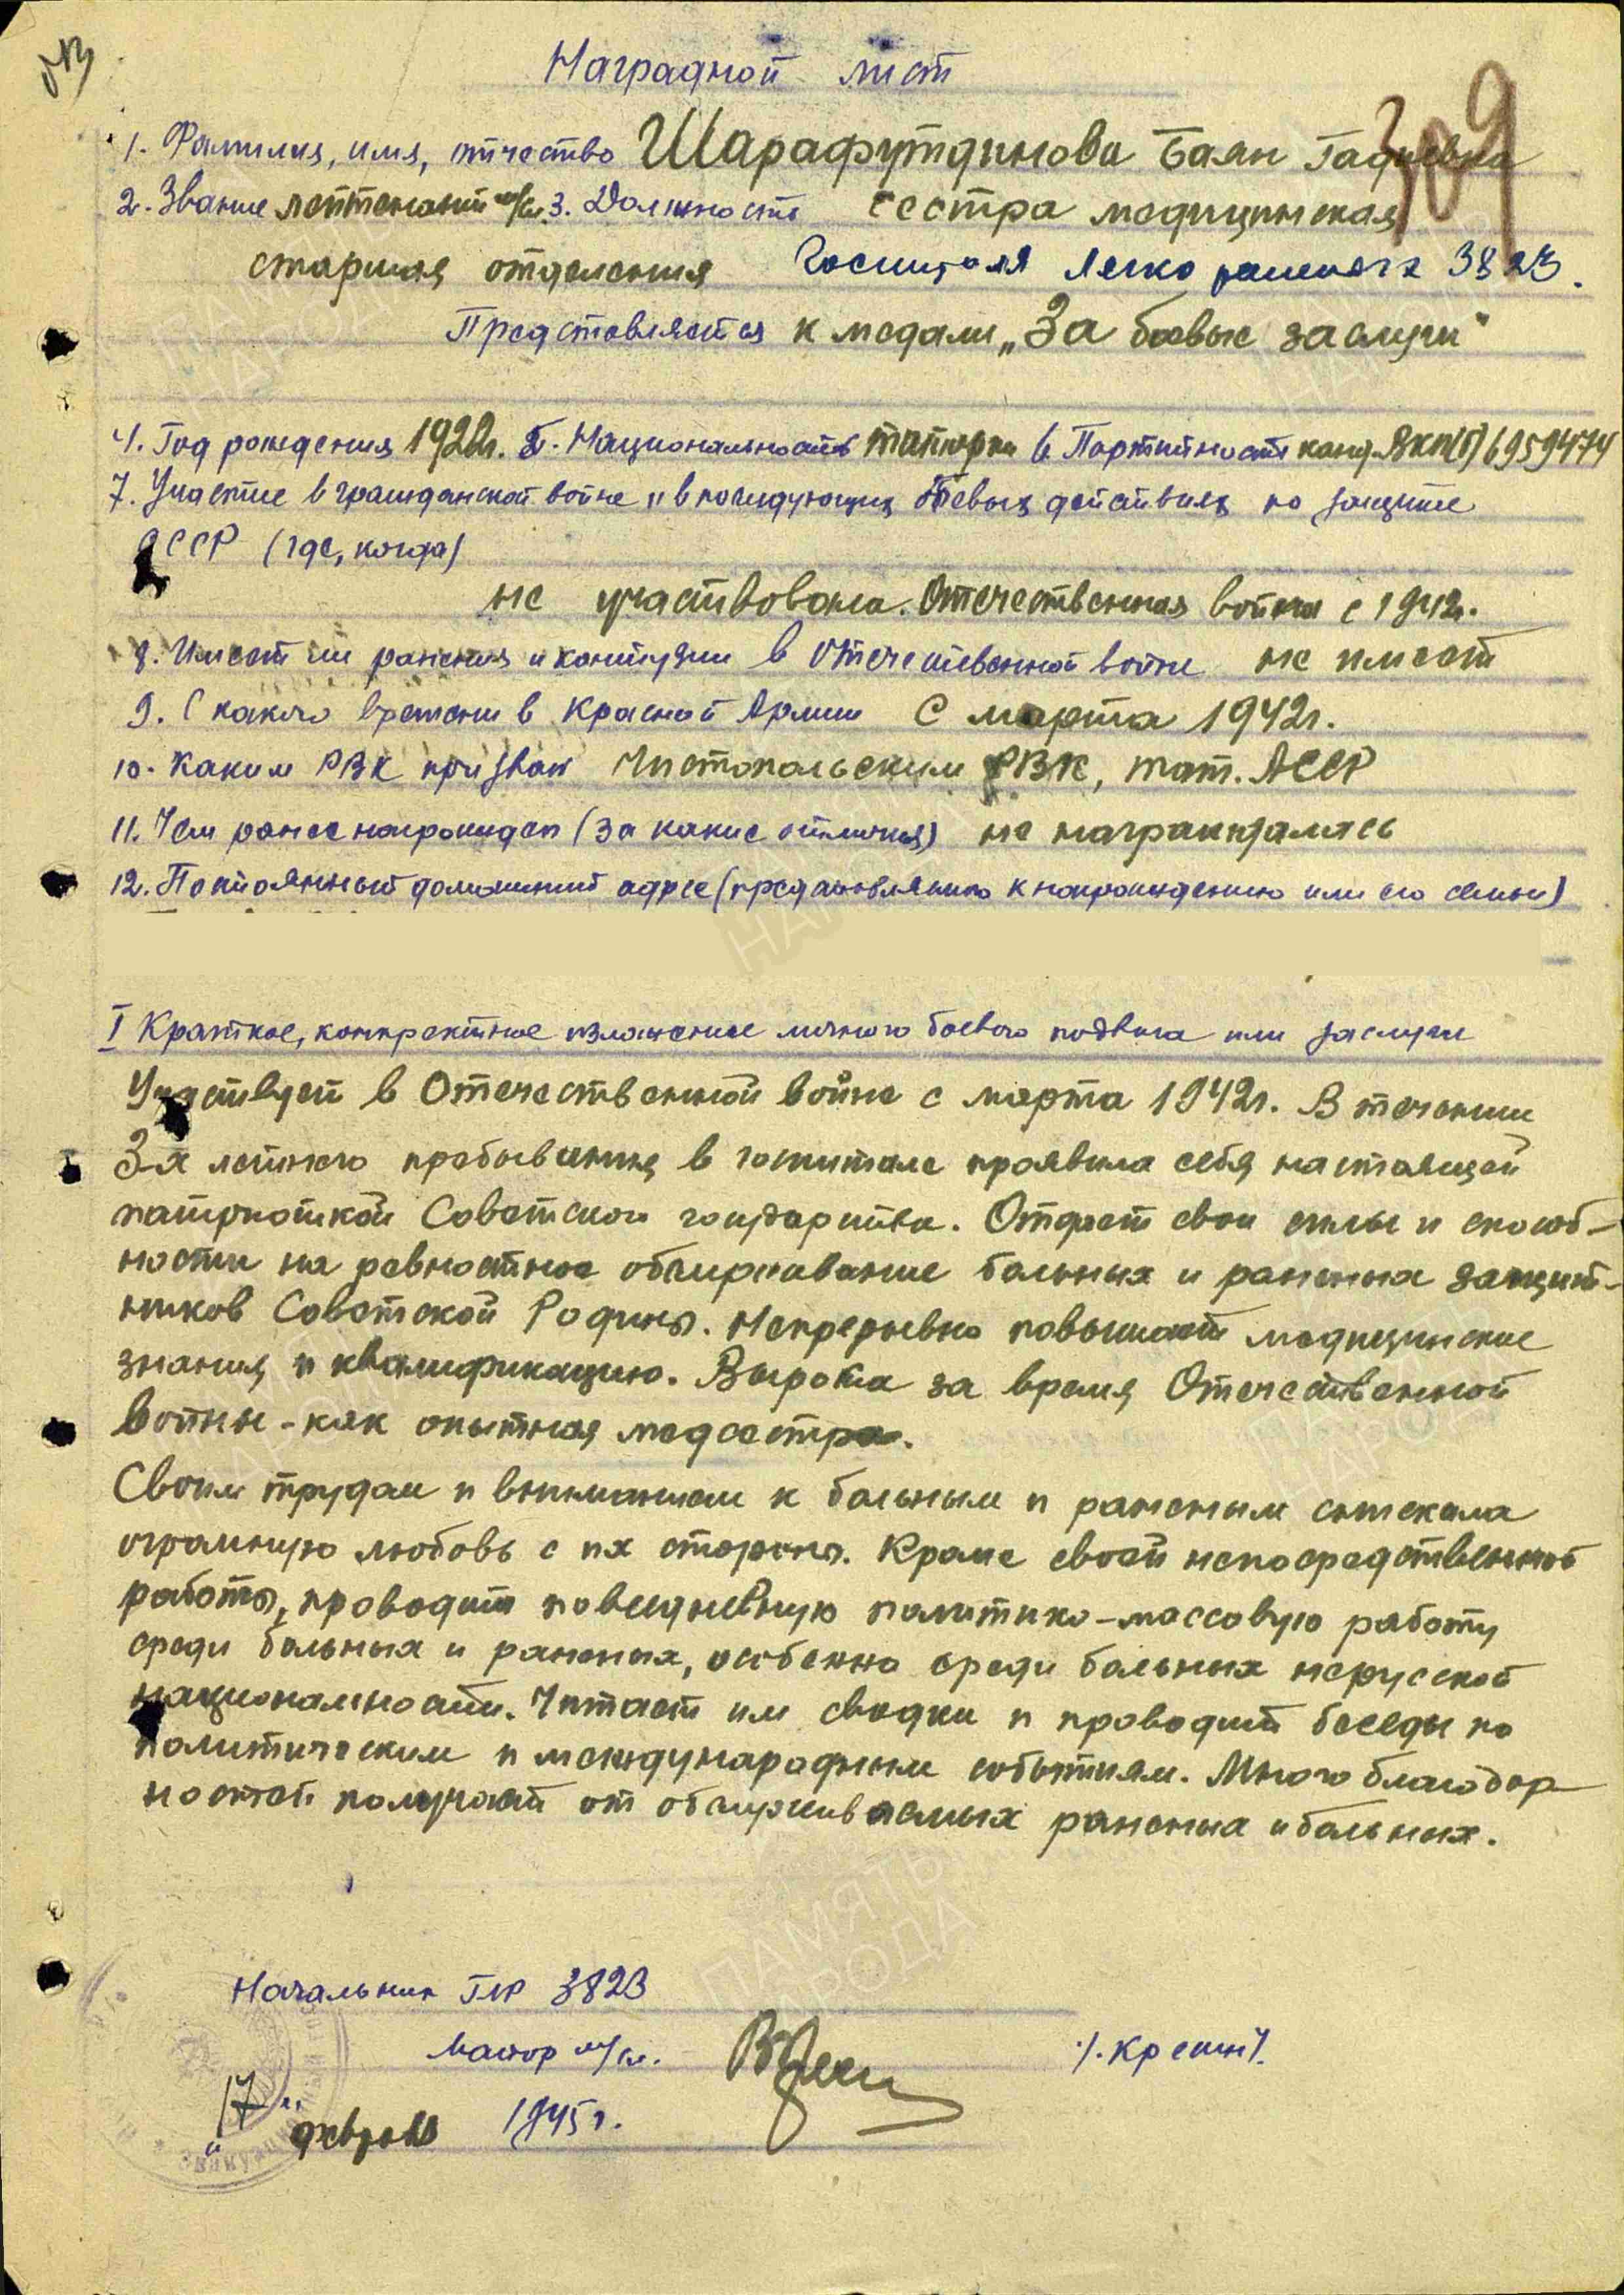 Наградной лист
309
1. Фамилия, имя, отчество Шарафутдинова Баян Гадиевна
2. Звание лейтенант м/сл. 3. Должность сестра медицинская
старшая отделения Госпиталя Легко раненых 3823.
Представляется к медали „За боевые заслуги"
4. Год рождения 1922г. 5. Национальность татарка 6. Партийность канд. ВКП(б) 6959474
7. Участие в гражданской войне и в последующих боевых действиях по защите
СССР (где, когда)
не участвовала. Отечественная война с 1942г.
8. Имеет ли ранения и контузии в Отечественной войне не имеет
9. С какого времени в Красной Армии С марта 1942г.
10. Каким РВК призван Чистопольским РВК, тат. АССР
11. Чем ранее награжден (за какие отличия) не награждалась
12. Постоянный домашний адрес (представляемого к награждению или его семьи)
I Краткое, конкретное изложение личного боевого подвига или заслуги
Участвует в Отечественной войне с марта 1942г. В течении
3-х летнего пребывания в госпитале проявила себя настоящей
патриоткой Советского государства. Отдает свои силы и способ-
ности на ревностное обслуживание больных и раненых защит-
ников Советской Родины. Непрерывно повышает медицинские
знания и квалификацию. Выросла за время Отечественной
войны - как опытная медсестра.
Своим трудом и вниманием к больным и раненым снискала
огромную любовь с их стороны. Кроме своей непосредственной
работы, проводит повседневную политико-массовую работу
среди больных и раненых, особенно среди больных нерусской
национальности. Читает им сводки и проводит беседы по
политическим и международным событиям. Много благодар
ностей получает от обслуживаемых раненых и больных.
Начальник ГЛР 3823
майор м/сл.
/. Кремн/.
"17" февраля 1945г.
ПАМЯТЬ НАРОДА